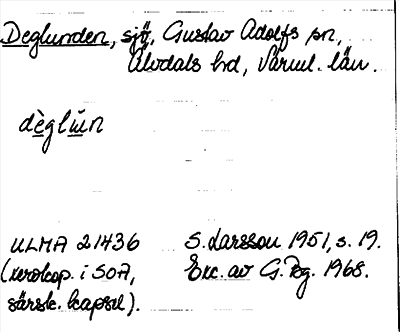 Deglunden, sjö, Gustav Adolfs sn,
Älvdals hd, Värml. län.
dèglŭn
ULMA 21436 S. Larsson 1951, s. 19.
(xerokop. i SOA, Exc. av G. Bg. 1968.
särsk. kapsel).